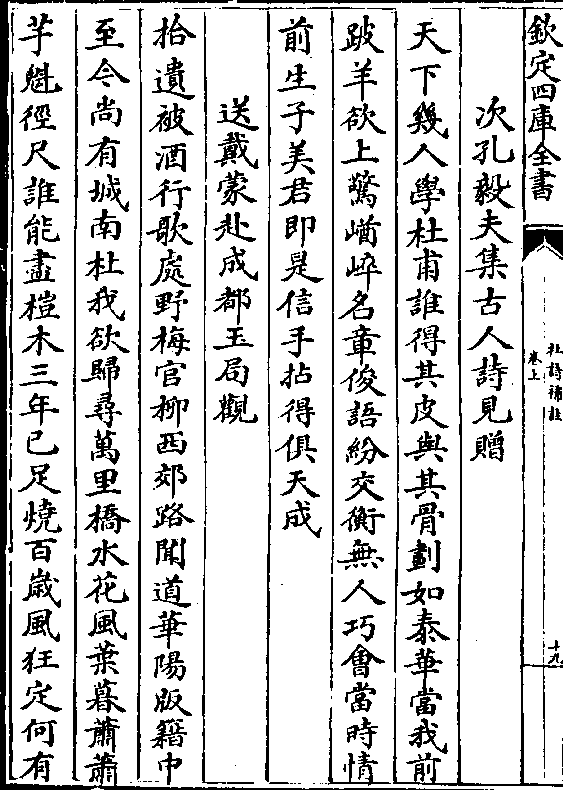 欽定四庫全書
杜詩補註
卷上
十九
次孔毅夫集古人詩見贈
天下幾人學杜甫誰得其皮與其骨劃如泰華當我前
跛羊欲上驚崷崪名章俊語紛交衡無人巧會當時情
前生子美君即是信手拈得俱天成
送戴蒙赴成都玉局觀
拾遺被酒行歌處野梅官柳西郊路聞道華陽版籍中
至今尚有城南杜我欲歸尋萬里橋水花風葉暮蕭蕭
芋魁徑尺誰能盡榿木三年已足燒百歲風狂定何有